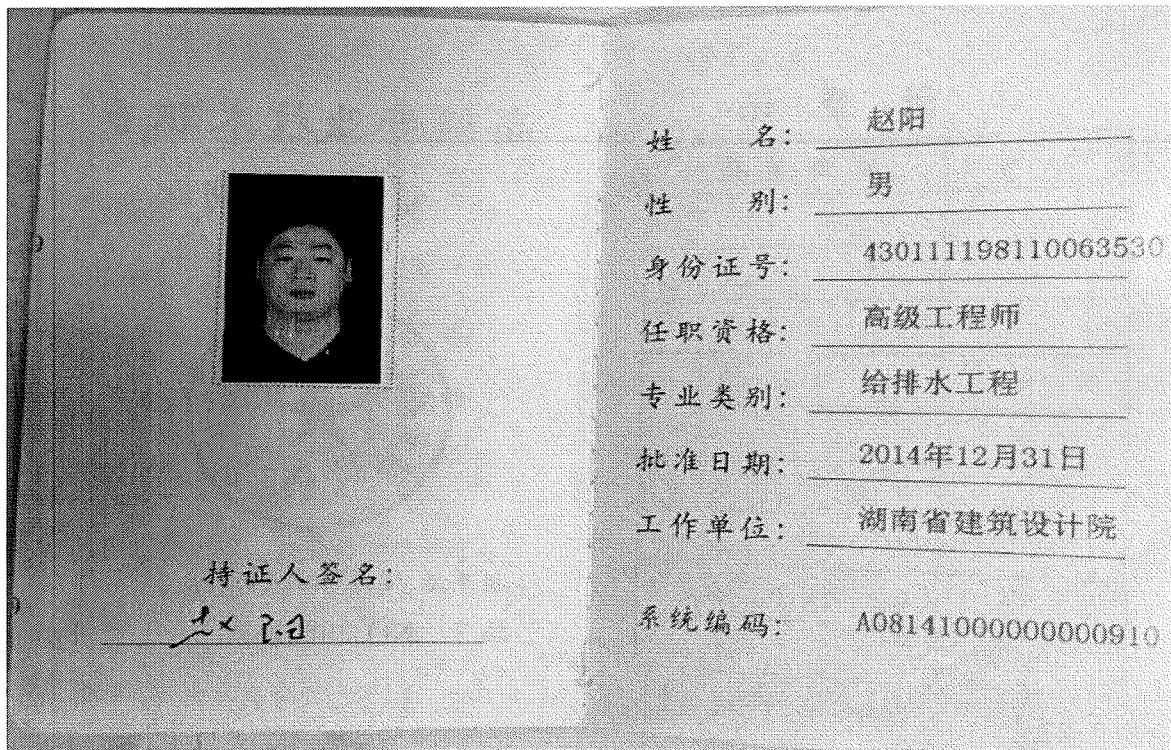 持证人签名:
赵阳
姓 名: 赵阳
性 别: 男
身份证号: 430111198110063530
任职资格: 高级工程师
专业类别: 给排水工程
批准日期: 2014年12月31日
工作单位: 湖南省建筑设计院
系统编码: A08141000000000910